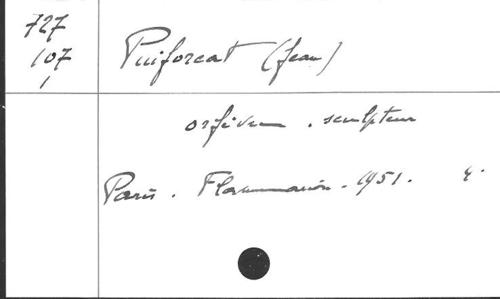 727
107
1
Puiforcat (Jean)
orfèvre . sculpteur
Paris . Flammarion . 1951. 4.